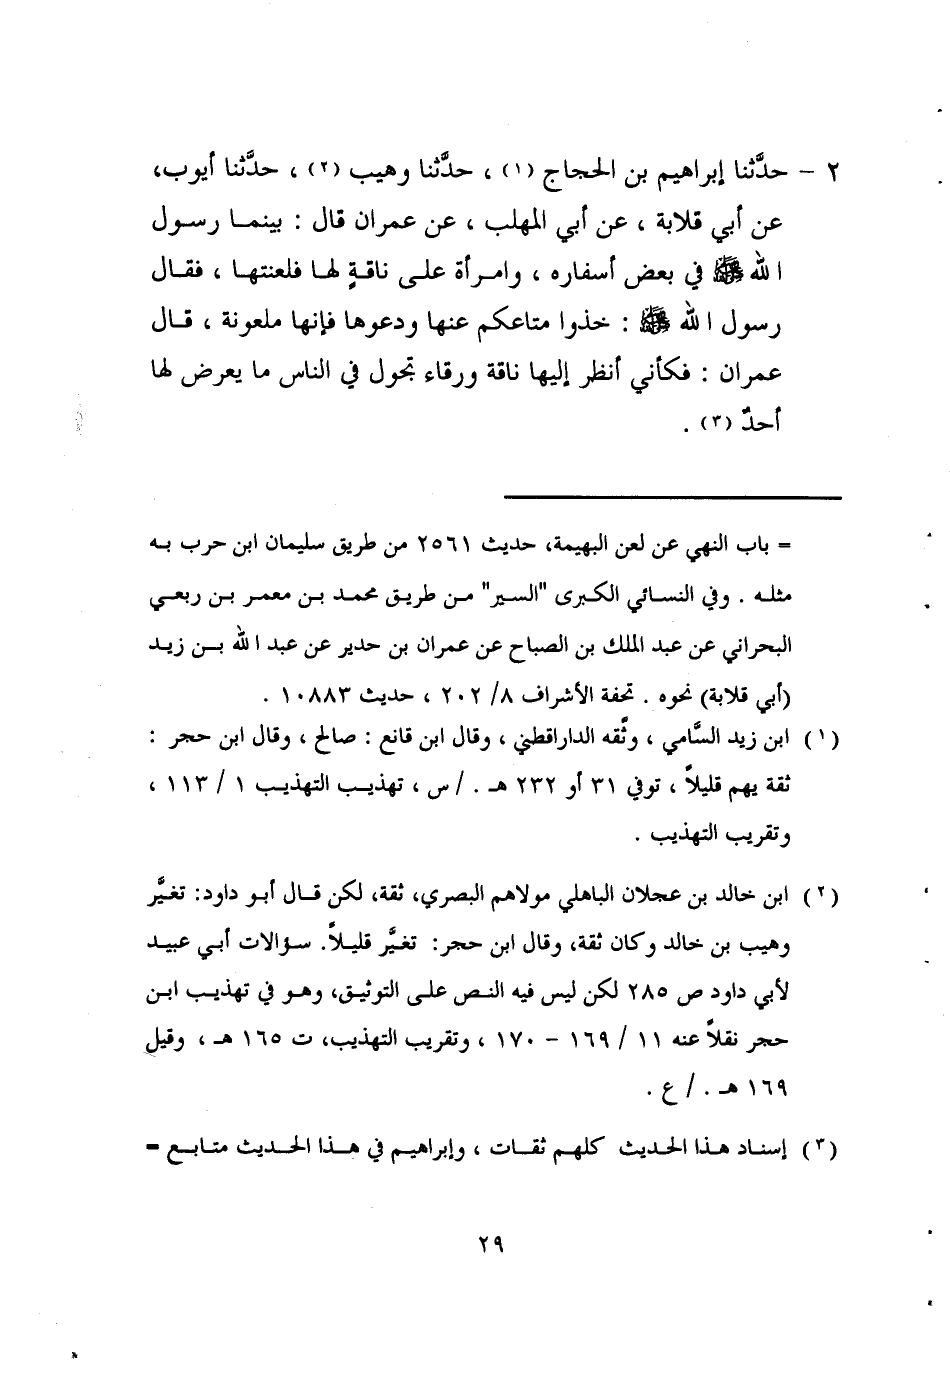 ٢ - حدَّثنا إبراهيم بن الحجاج (١) ، حدَّثنا وهيب (٢) ، حدَّثنا أيوب،
عن أبي قلابة ، عن أبي المهلب ، عن عمران قال : بينما رسول
الله ﷺ في بعض أسفاره ، وامرأة على ناقةٍ لها فلعنتها ، فقال
رسول الله ﷺ : خذوا متاعكم عنها ودعوها فإنها ملعونة ، قال
عمران : فكأني أنظر إليها ناقة ورقاء تجول في الناس ما يعرض لها
أحدٌ (٣) .
= باب النهي عن لعن البهيمة، حديث ٢٥٦١ من طريق سليمان ابن حرب به
مثله . وفي النسائي الكبرى "السير" من طريق محمد بن معمر بن ربعي
البحراني عن عبد الملك بن الصباح عن عمران بن حدير عن عبد الله بن زيد
(أبي قلابة) نحوه . تحفة الأشراف ٨/ ٢٠٢ ، حديث ١٠٨٨٣ .
(١) ابن زيد السَّامي ، وثَّقه الداراقطني ، وقال ابن قانع : صالح ، وقال ابن حجر :
ثقة يهم قليلاً ، توفي ٣١ أو ٢٣٢ هـ . /س ، تهذيب التهذيب ١ / ١١٣ ،
وتقريب التهذيب .
(٢) ابن خالد بن عجلان الباهلي مولاهم البصري، ثقة، لكن قال أبو داود: تغيَّر
وهيب بن خالد وكان ثقة، وقال ابن حجر: تغيَّر قليلاً. سؤالات أبي عبيد
لأبي داود ص ٢٨٥ لكن ليس فيه النص على التوثيق، وهو في تهذيب ابن
حجر نقلاً عنه ١١ / ١٦٩ - ١٧٠ ، وتقريب التهذيب، ت ١٦٥ هـ ، وقيل
١٦٩ هـ . / ع .
(٣) إسناد هذا الحديث كلهم ثقات ، وإبراهيم في هذا الحديث متابع =
٢٩